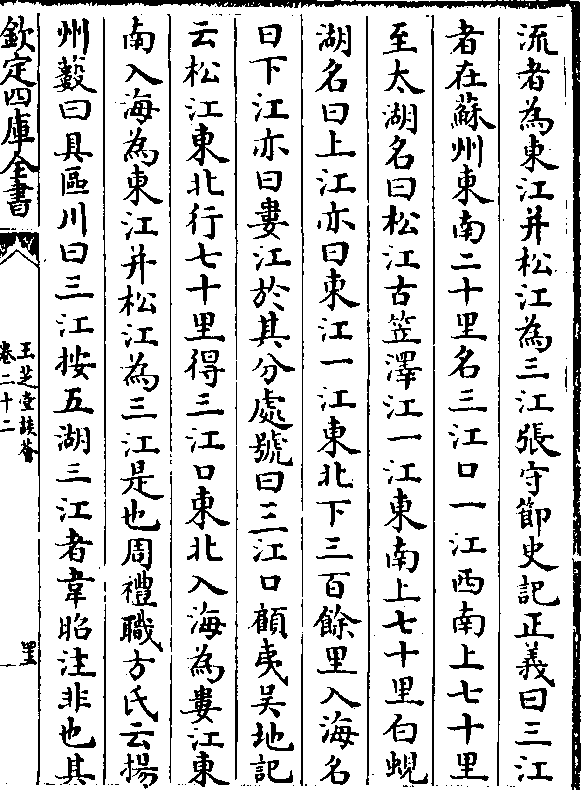 流者為東江并松江為三江張守節史記正義曰三江
者在蘇州東南二十里名三江口一江西南上七十里
至太湖名曰松江古笠澤江一江東南上七十里白蜆
湖名曰上江亦曰東江一江東北下三百餘里入海名
曰下江亦曰婁江於其分處號曰三江口顧夷吳地記
云松江東北行七十里得三江口東北入海為婁江東
南入海為東江并松江為三江是也周禮職方氏云揚
州藪曰具區川曰三江按五湖三江者韋昭注非也其
欽定四庫全書
玉芝堂談薈
卷二十二